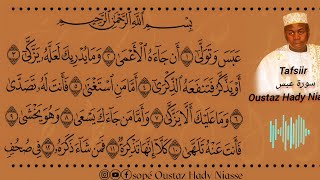 بِسْمِ اللَّهِ الرَّحْمَٰنِ الرَّحِيمِ
عَبَسَ وَتَوَلَّىٰٓ ١ أَن جَآءَهُ الْأَعْمَىٰ ٢ وَمَا يُدْرِيكَ لَعَلَّهُۥ يَزَّكَّىٰٓ ٣
أَوْ يَذَّكَّرُ فَتَنفَعَهُ الذِّكْرَىٰٓ ٤ أَمَّا مَنِ اسْتَغْنَىٰ ٥ فَأَنتَ لَهُۥ تَصَدَّىٰ
٦ وَمَا عَلَيْكَ أَلَّا يَزَّكَّىٰ ٧ وَأَمَّا مَن جَآءَكَ يَسْعَىٰ ٨ وَهُوَ يَخْشَىٰ ٩
فَأَنتَ عَنْهُ تَلَهَّىٰ ١٠ كَلَّآ إِنَّهَا تَذْكِرَةٌ ١١ فَمَن شَآءَ ذَكَرَهُۥ ١٢ فِي صُحُفٍ
Tafsiir
سورة عبس
Oustaz Hady Niasse
sopé Oustaz Hady Niasse